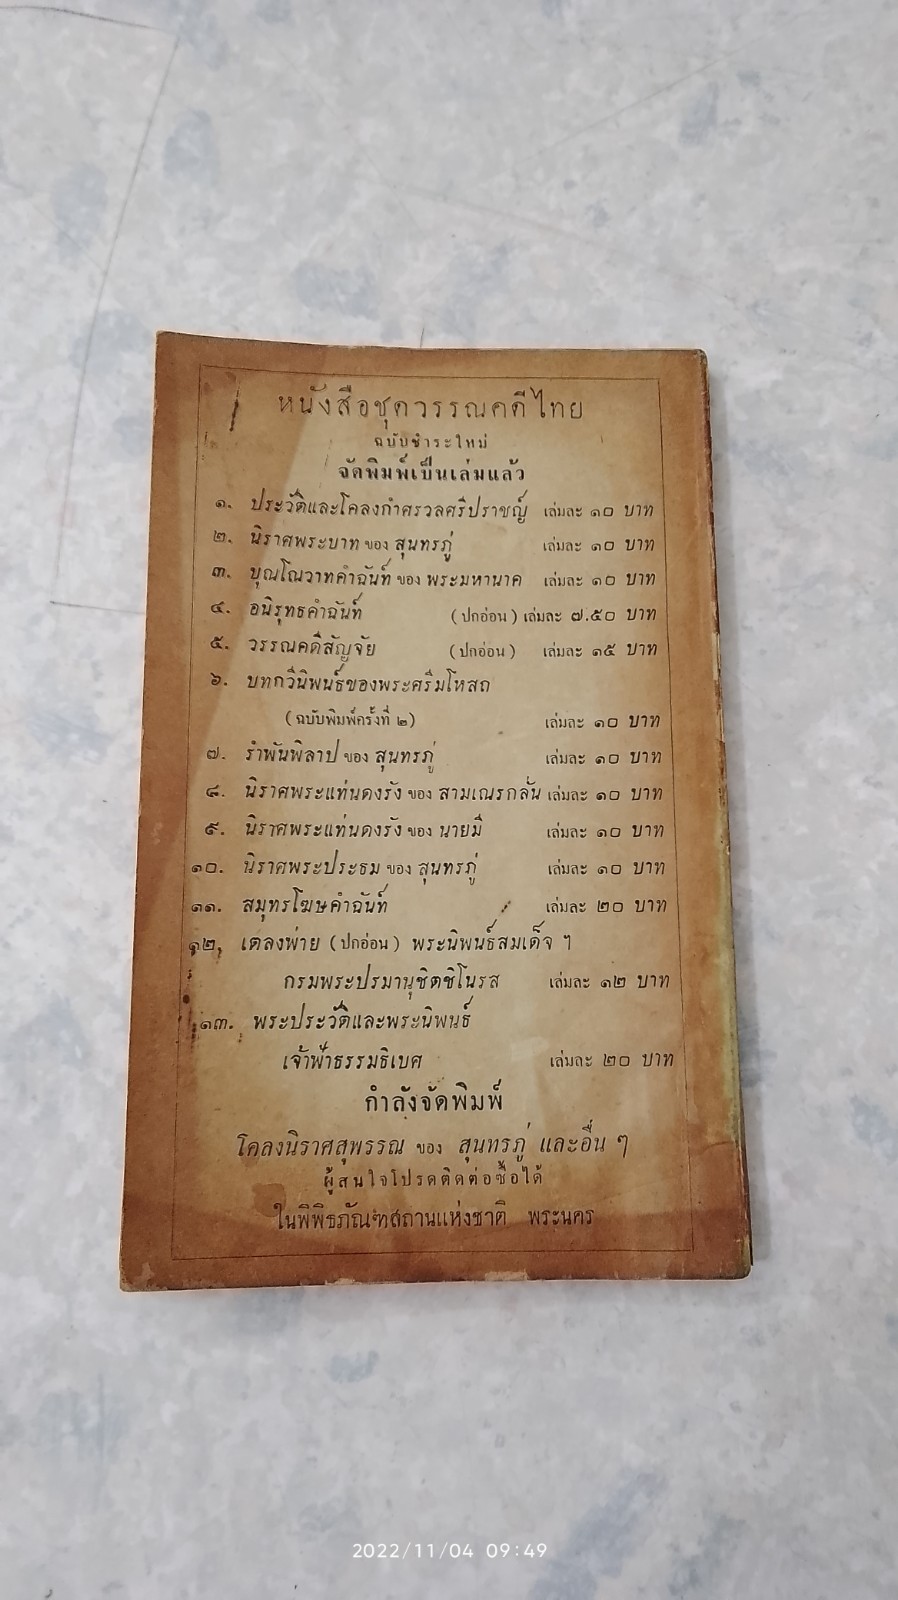 หนังสือชุดวรรณคดีไทย
ฉบับชำระใหม่
จัดพิมพ์เป็นเล่มแล้ว
๑. ประวัติและโคลงกำศรวลศรีปราชญ์ เล่มละ ๑๐ บาท
๒. นิราศพระบาท ของ สุนทรภู่ เล่มละ ๑๐ บาท
๓. บุณโณวาทคำฉันท์ ของ พระมหานาค เล่มละ ๑๐ บาท
๔. อนิรุทธคำฉันท์ (ปกอ่อน) เล่มละ ๗.๕๐ บาท
๕. วรรณคดีสัญจัย (ปกอ่อน) เล่มละ ๑๕ บาท
๖. บทกวีนิพนธ์ของพระศรีมโหสถ
(ฉบับพิมพ์ครั้งที่ ๒) เล่มละ ๑๐ บาท
๗. รำพันพิลาป ของ สุนทรภู่ เล่มละ ๑๐ บาท
๘. นิราศพระแท่นดงรัง ของ สามเณรกลั่น เล่มละ ๑๐ บาท
๙. นิราศพระแท่นดงรัง ของ นายมี เล่มละ ๑๐ บาท
๑๐. นิราศพระประธม ของ สุนทรภู่ เล่มละ ๑๐ บาท
๑๑. สมุทรโฆษคำฉันท์ เล่มละ ๒๐ บาท
๑๒. เตลงพ่าย (ปกอ่อน) พระนิพนธ์สมเด็จ ฯ
กรมพระปรมานุชิตชิโนรส เล่มละ ๑๒ บาท
๑๓. พระประวัติและพระนิพนธ์
เจ้าฟ้าธรรมธิเบศ เล่มละ ๒๐ บาท
กำลังจัดพิมพ์
โคลงนิราศสุพรรณ ของ สุนทรภู่ และอื่น ๆ
ผู้สนใจโปรดติดต่อซื้อได้
ในพิพิธภัณฑสถานแห่งชาติ พระนคร
2022/11/04 09:49